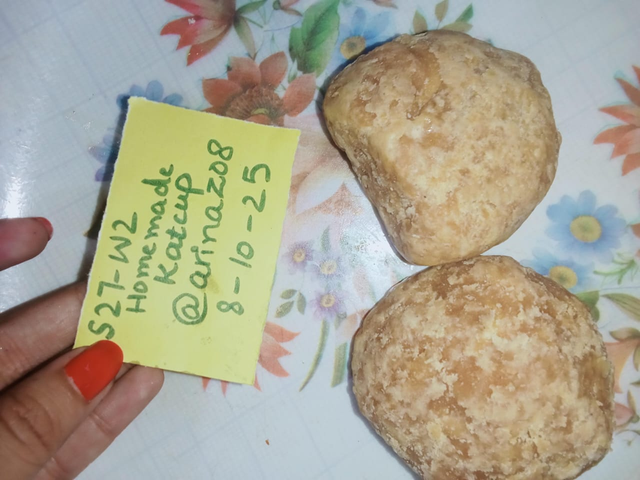 S27-W2
Homemade
Katcup
@arinaz08
8-10-25